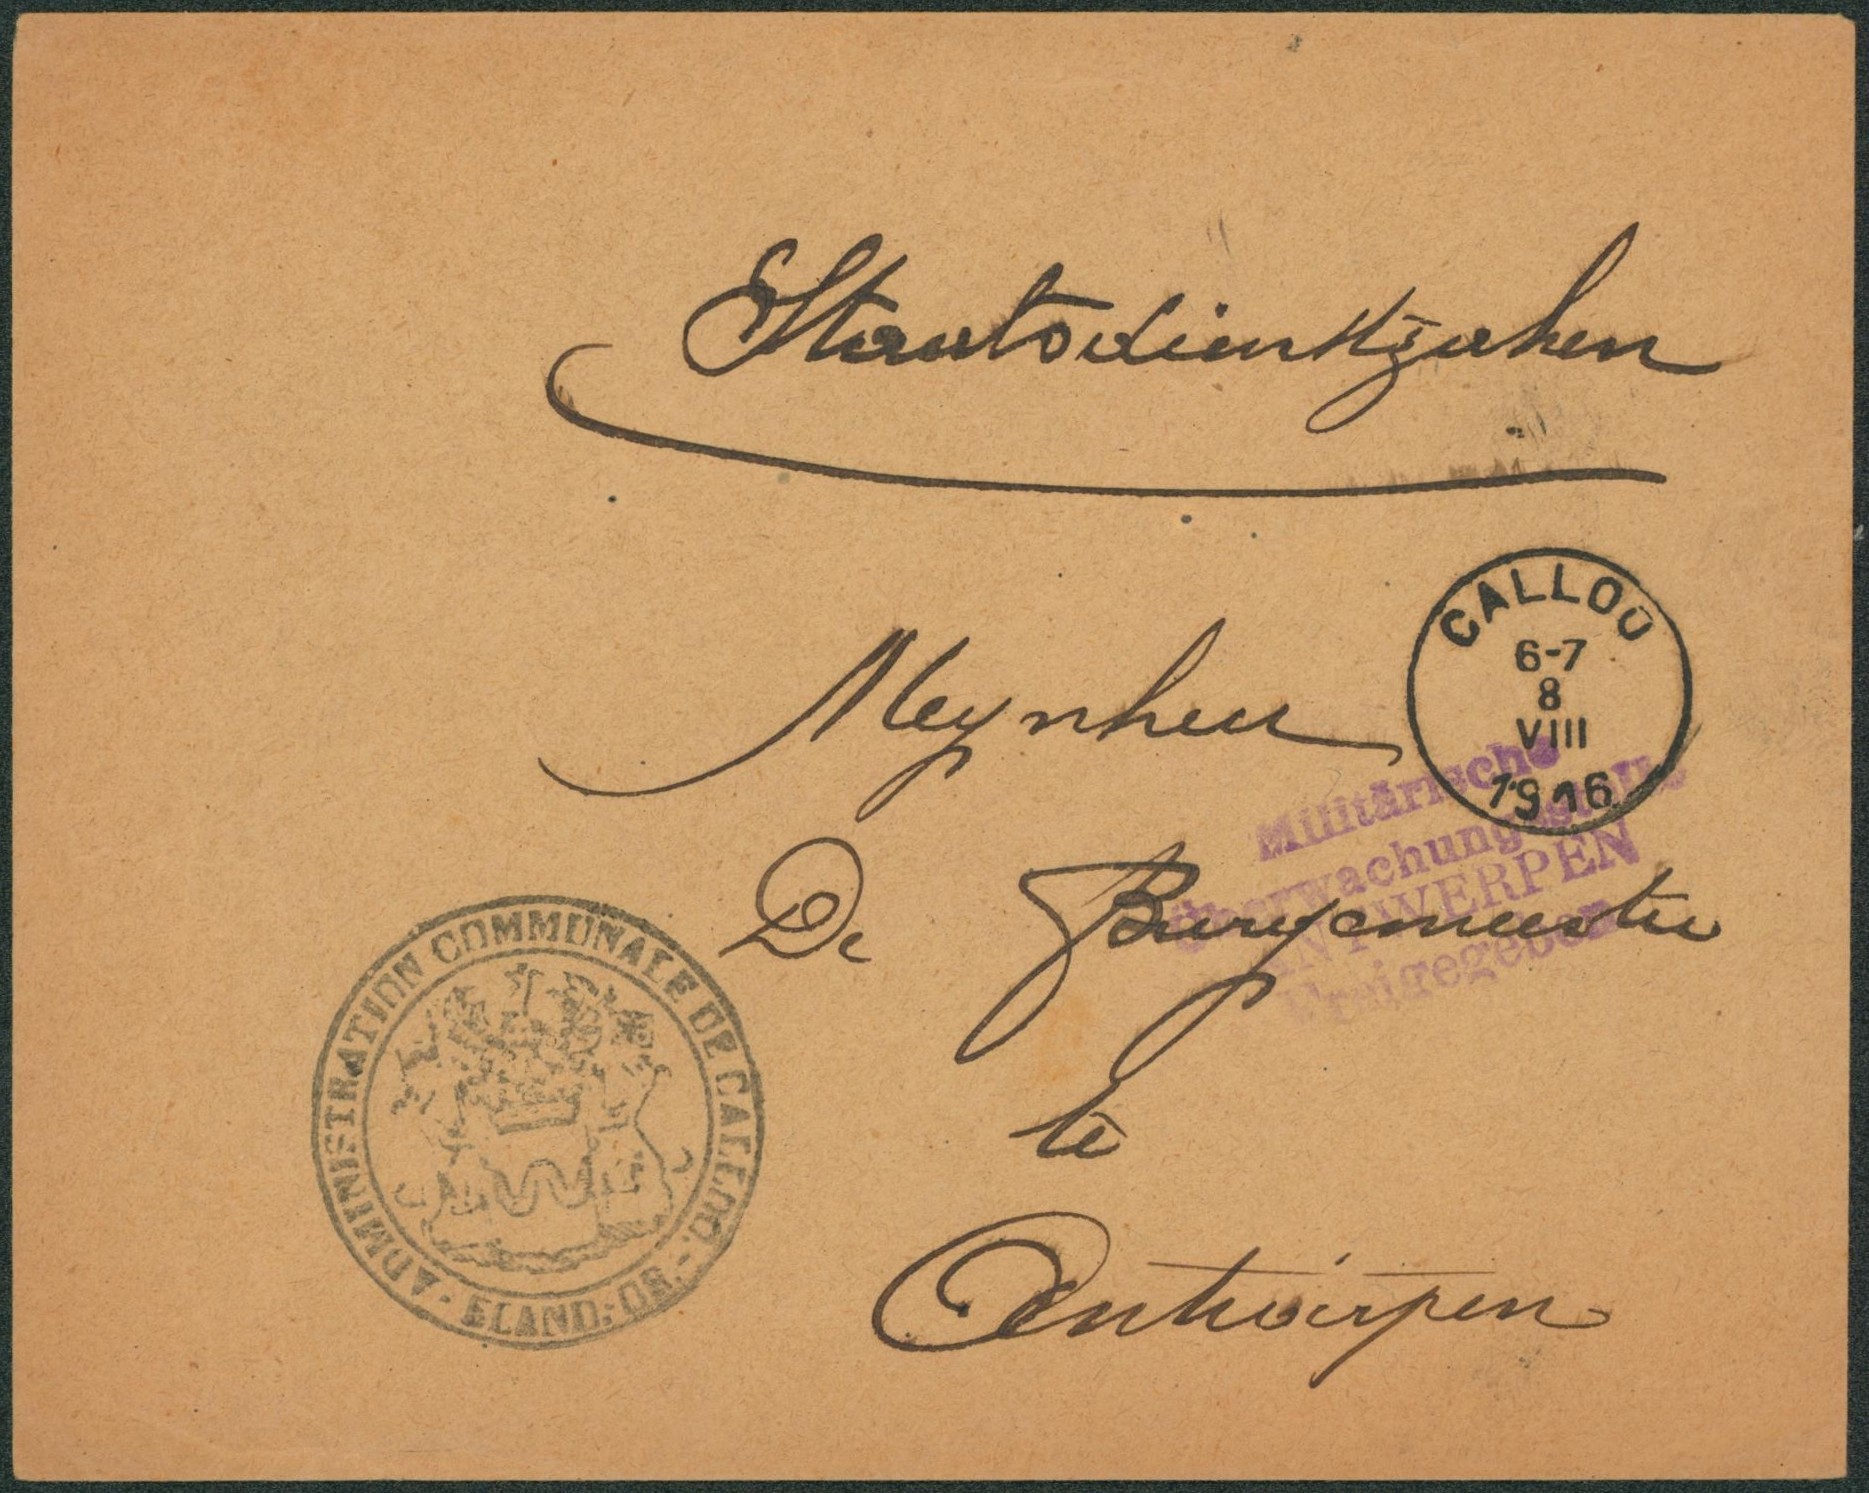 Staatsdienstzaken
CALLOO
6-7
8
VIII
1916
Mynheer
Militärische
Überwachungsstelle
ANTWERPEN
Freigegeben
De Burgemeester
te
Antwerpen
ADMINISTRATION COMMUNALE DE CALLOO.
- FLAND: OR. -